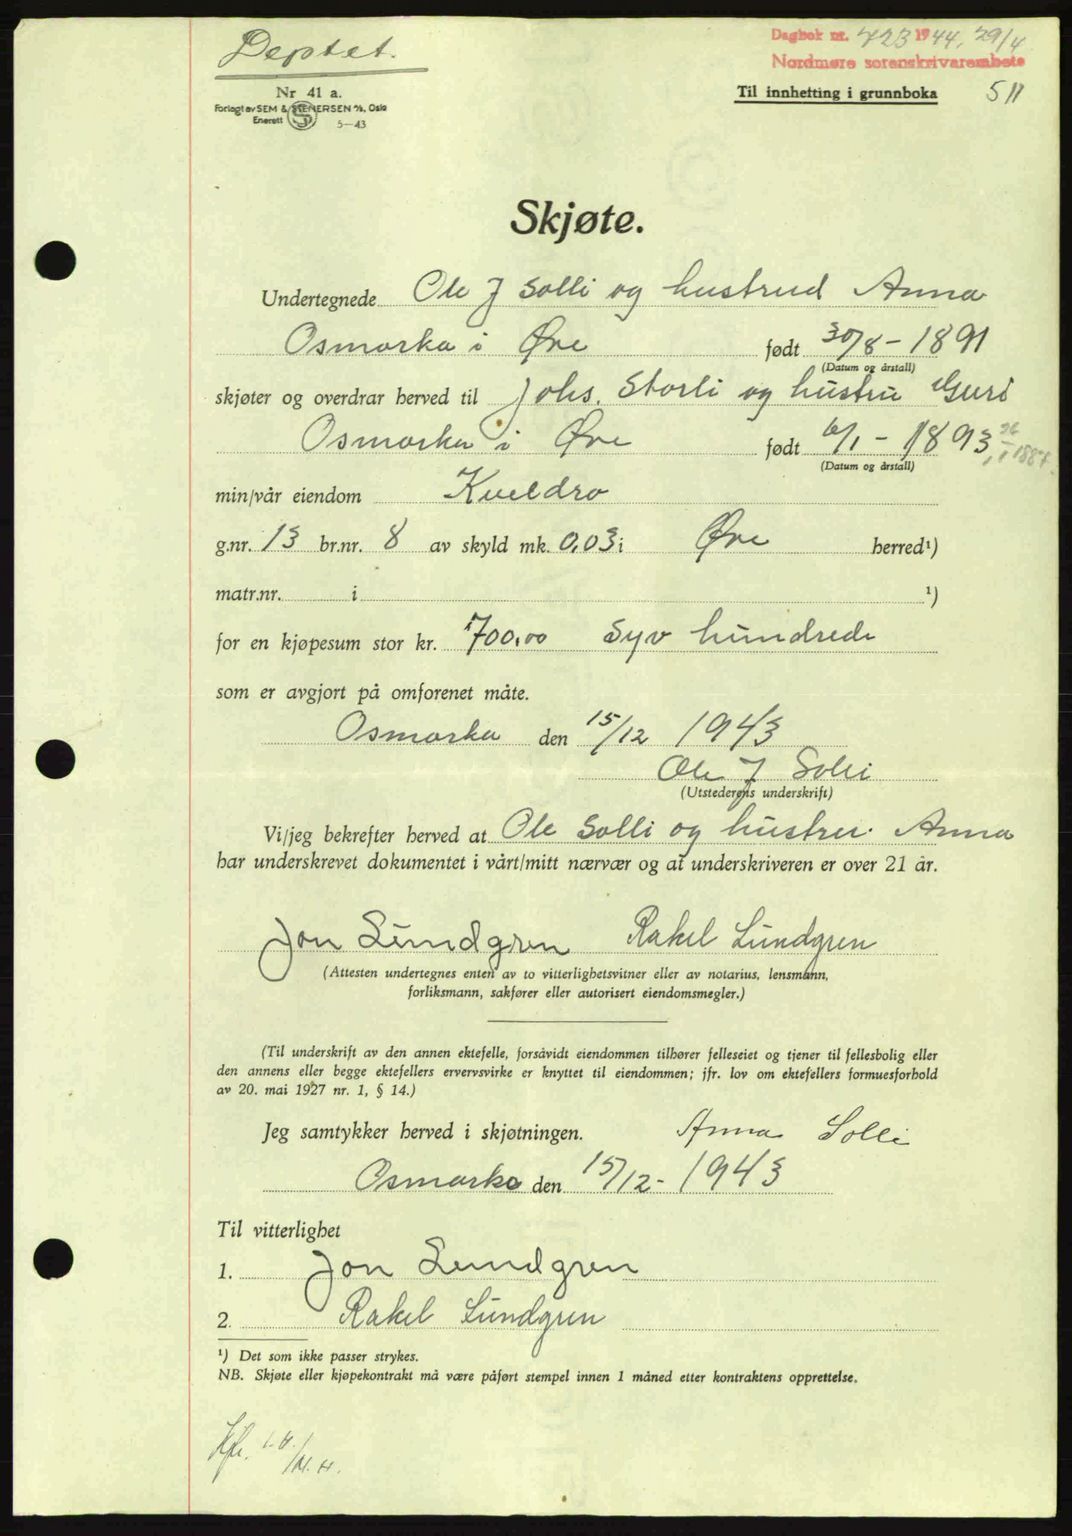 Deptet.
Dagbok nr. 723 1944, 29/4
Nordmøre sorenskriverembete
Nr 41 a.
Forlagt av SEM & STENERSEN A/S, Oslo
Enerett 5—43
Til innhefting i grunnboka 511
Skjøte.
Undertegnede Ole J Solli og hustrud Anna
Osmarka i Øre født 30/8 - 1891
(Datum og årstall)
skjøter og overdrar herved til Johs. Storli og hustru Guri
Osmarka i Øre født 6/1 - 1893, 26/1 1887.
(Datum og årstall)
min/vår eiendom Kveldro
g.nr. 13 br.nr. 8 av skyld mk. 0,03 i Øre herred¹)
matr.nr. i ¹)
for en kjøpesum stor kr. 700,00 Syv hundrede
som er avgjort på omforenet måte.
Osmarka den 15/12 1943
Ole J Solli
(Utstederens underskrift)
Vi/jeg bekrefter herved at Ole Solli og hustru. Anna
har underskrevet dokumentet i vårt/mitt nærvær og at underskriveren er over 21 år.
Jon Lundgren Rakel Lundgren
(Attesten undertegnes enten av to vitterlighetsvitner eller av notarius, lensmann,
forliksmann, sakfører eller autorisert eiendomsmegler.)
(Til underskrift av den annen ektefelle, forsåvidt eiendommen tilhører felleseiet og tjener til fellesbolig eller
den annens eller begge ektefellers ervervsvirke er knyttet til eiendommen; jfr. lov om ektefellers formuesforhold
av 20. mai 1927 nr. 1, § 14.)
Jeg samtykker herved i skjøtningen. Anna Solli
Osmarka den 15/12 - 1943
Til vitterlighet
1. Jon Lundgren
2. Rakel Lundgren
¹) Det som ikke passer strykes.
NB. Skjøte eller kjøpekontrakt må være påført stempel innen 1 måned etter kontraktens opprettelse.